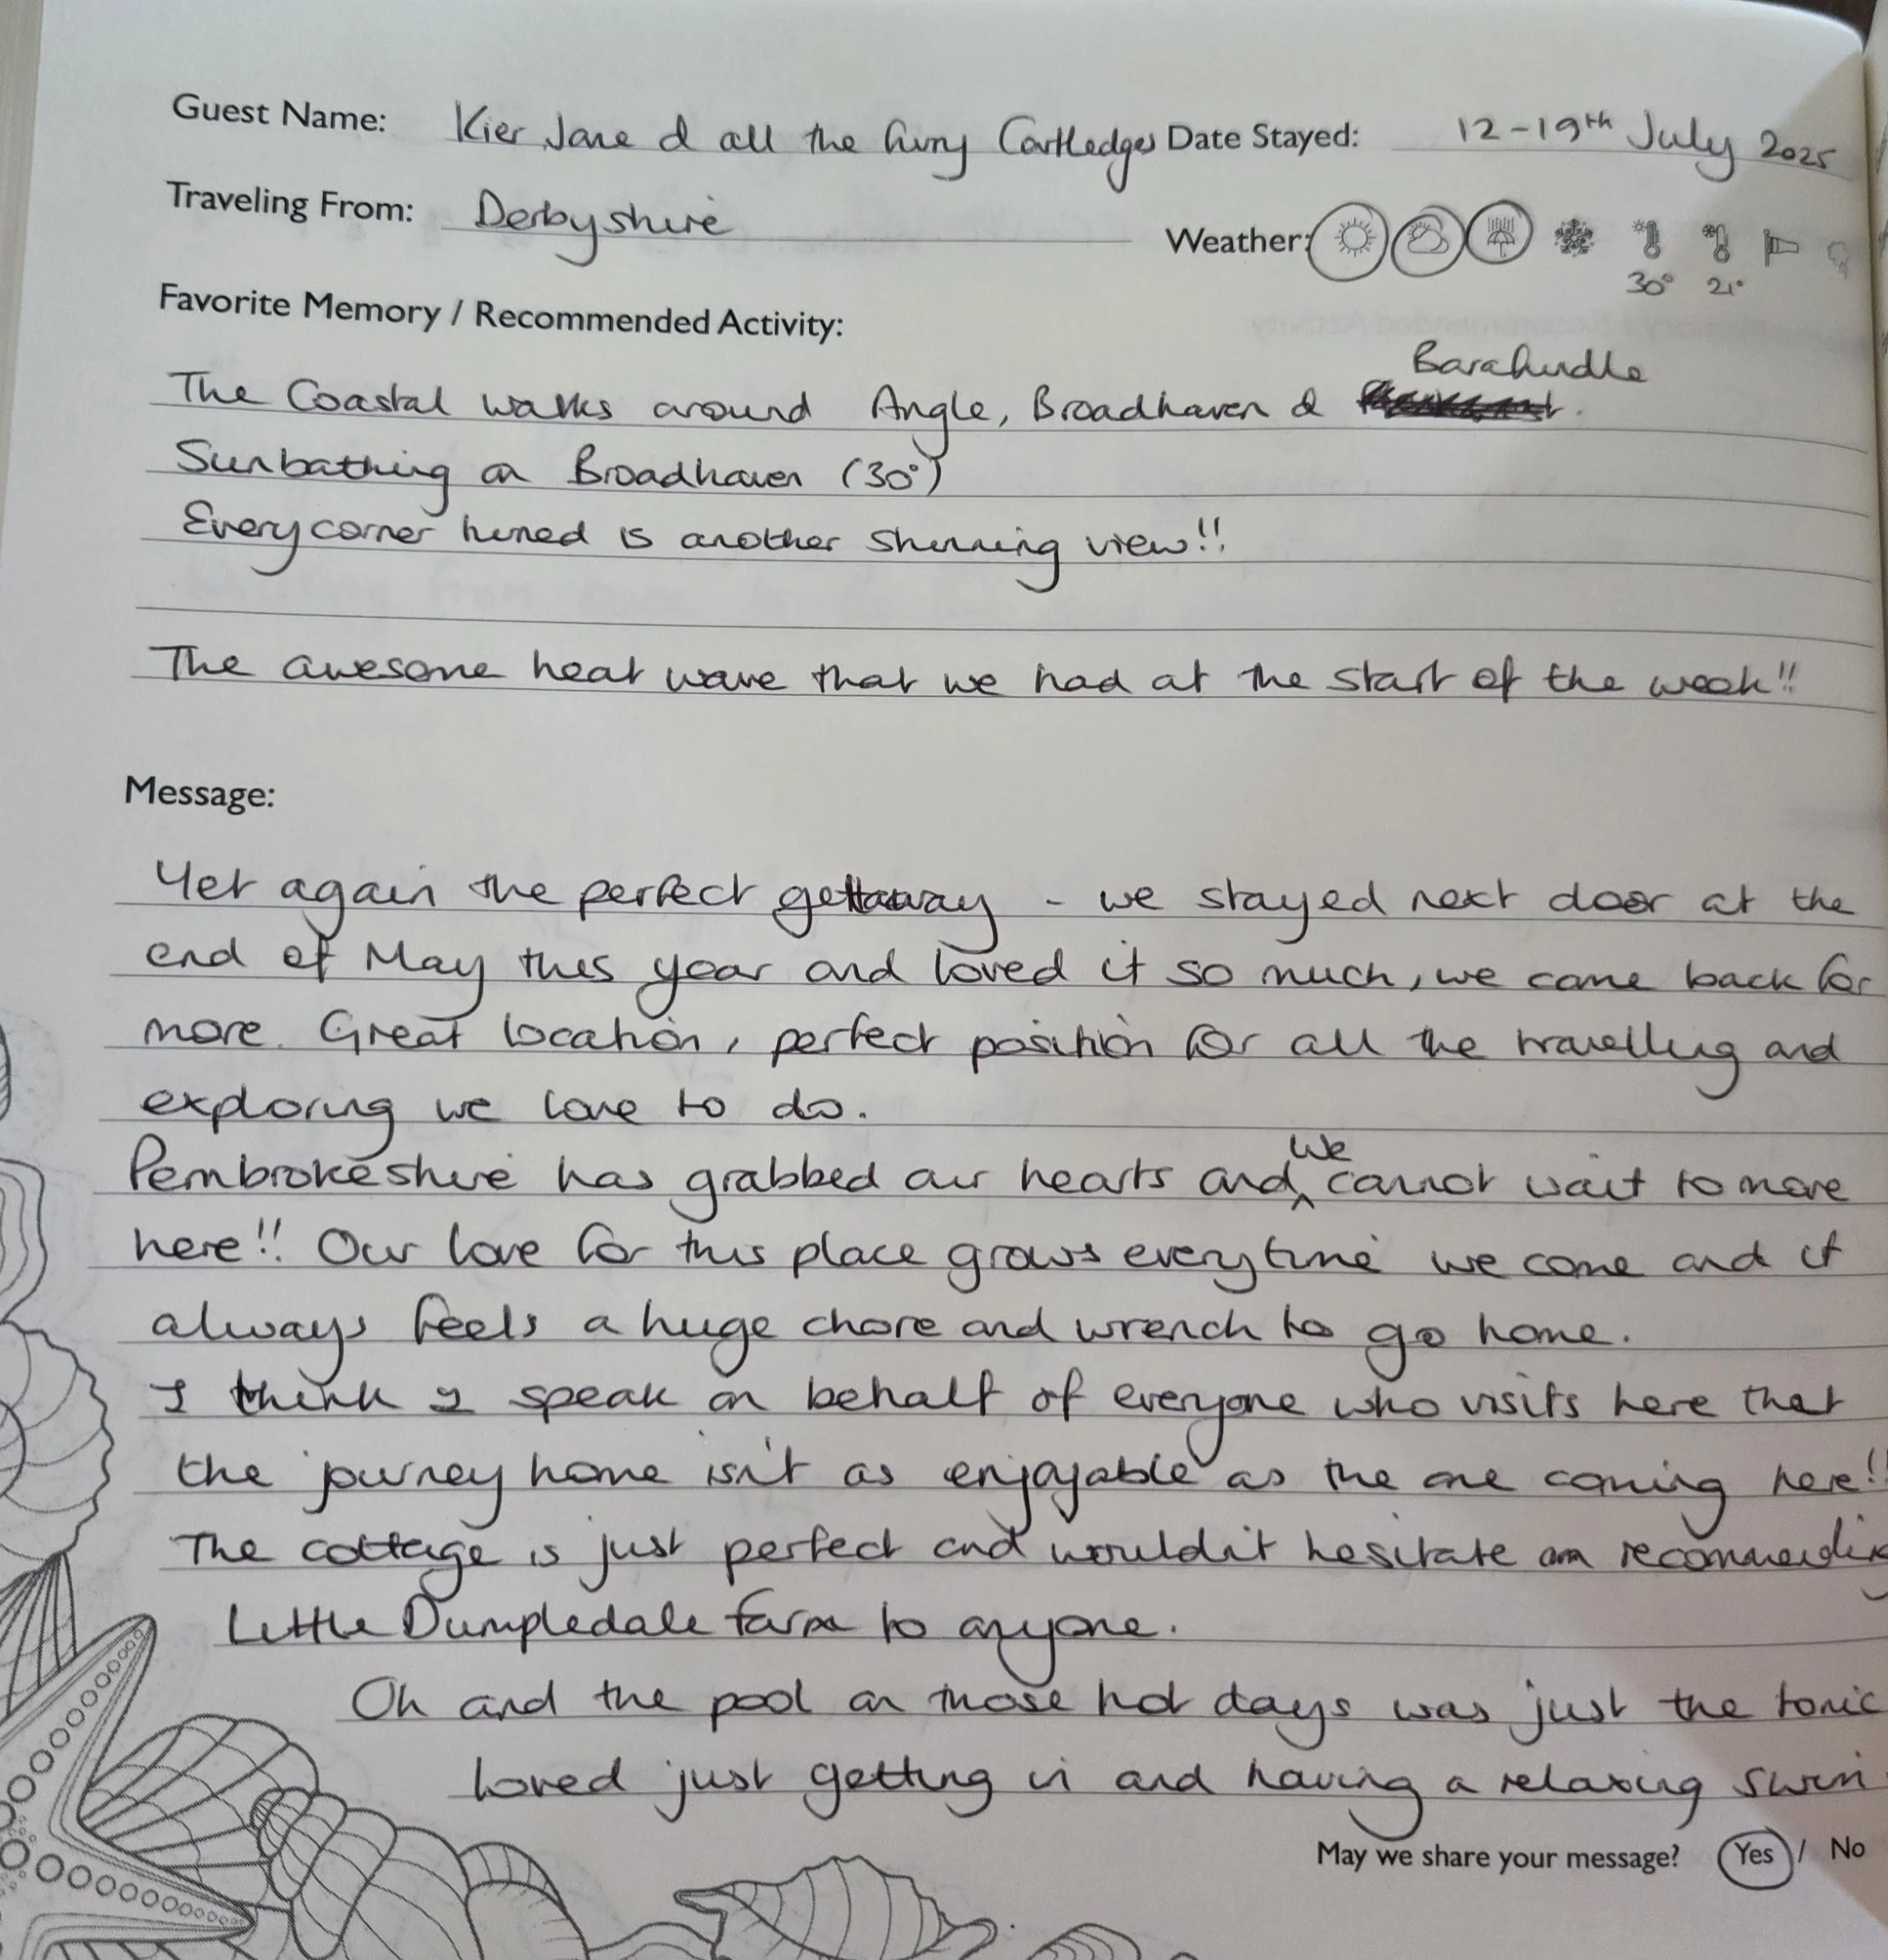 Guest Name: Kier Jane & all the furry Cartledges Date Stayed: 12-19th July 2025
Traveling From: Derbyshire Weather:
30° 21°
Favorite Memory / Recommended Activity:
Barafundle
The Coastal walks around Angle, Broadhaven &
Sunbathing on Broadhaven (30°)
Every corner turned is another stunning view!!
The awesome heat wave that we had at the start of the week!!
Message:
Yet again the perfect gettaway - we stayed next door at the
end of May this year and loved it so much, we came back for
more. Great location, perfect position for all the travelling and
exploring we love to do.
We
Pembrokeshire has grabbed our hearts and cannot wait to move
here!! Our love for this place grows everytime we come and it
always feels a huge chore and wrench to go home.
I think I speak on behalf of everyone who visits here that
the journey home isn't as enjoyable as the one coming here!!
The cottage is just perfect and wouldn't hesitate on recommending
Little Dumpledale farm to anyone.
Oh and the pool on those hot days was just the tonic
loved just getting in and having a relaxing swim
May we share your message? Yes / No